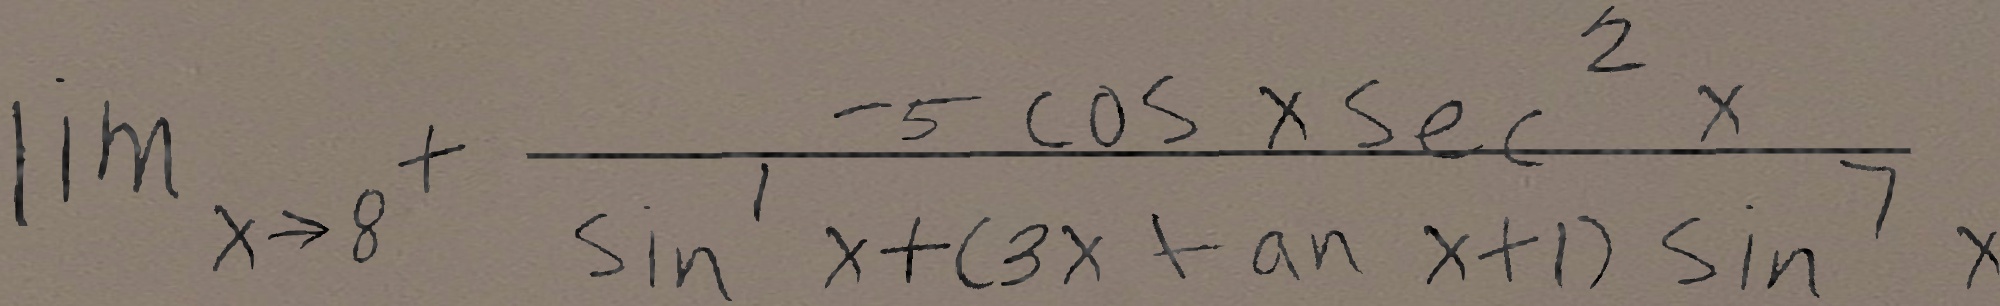 \lim_{x \to 8^+} \frac{-5 \cos x \sec^2 x}{\sin^1 x + (3x \tan x + 1) \sin^7 x}